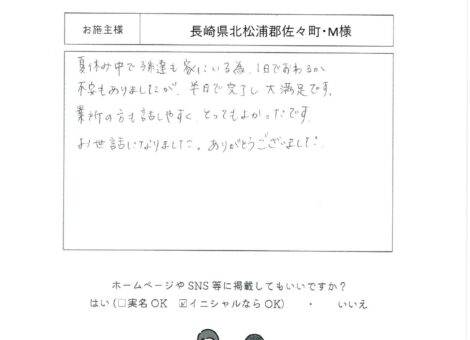 お施主様
長崎県北松浦郡佐々町・M様
夏休み中で孫達も家にいる為、1日でおわるか
不安もありましたが、半日で完了し大満足です。
業者の方も話しやすく、とってもよかったです。
お世話になりました。ありがとうございました。
ホームページやSNS等に掲載してもいいですか?
はい(□実名OK ☑イニシャルならOK) ・ いいえ